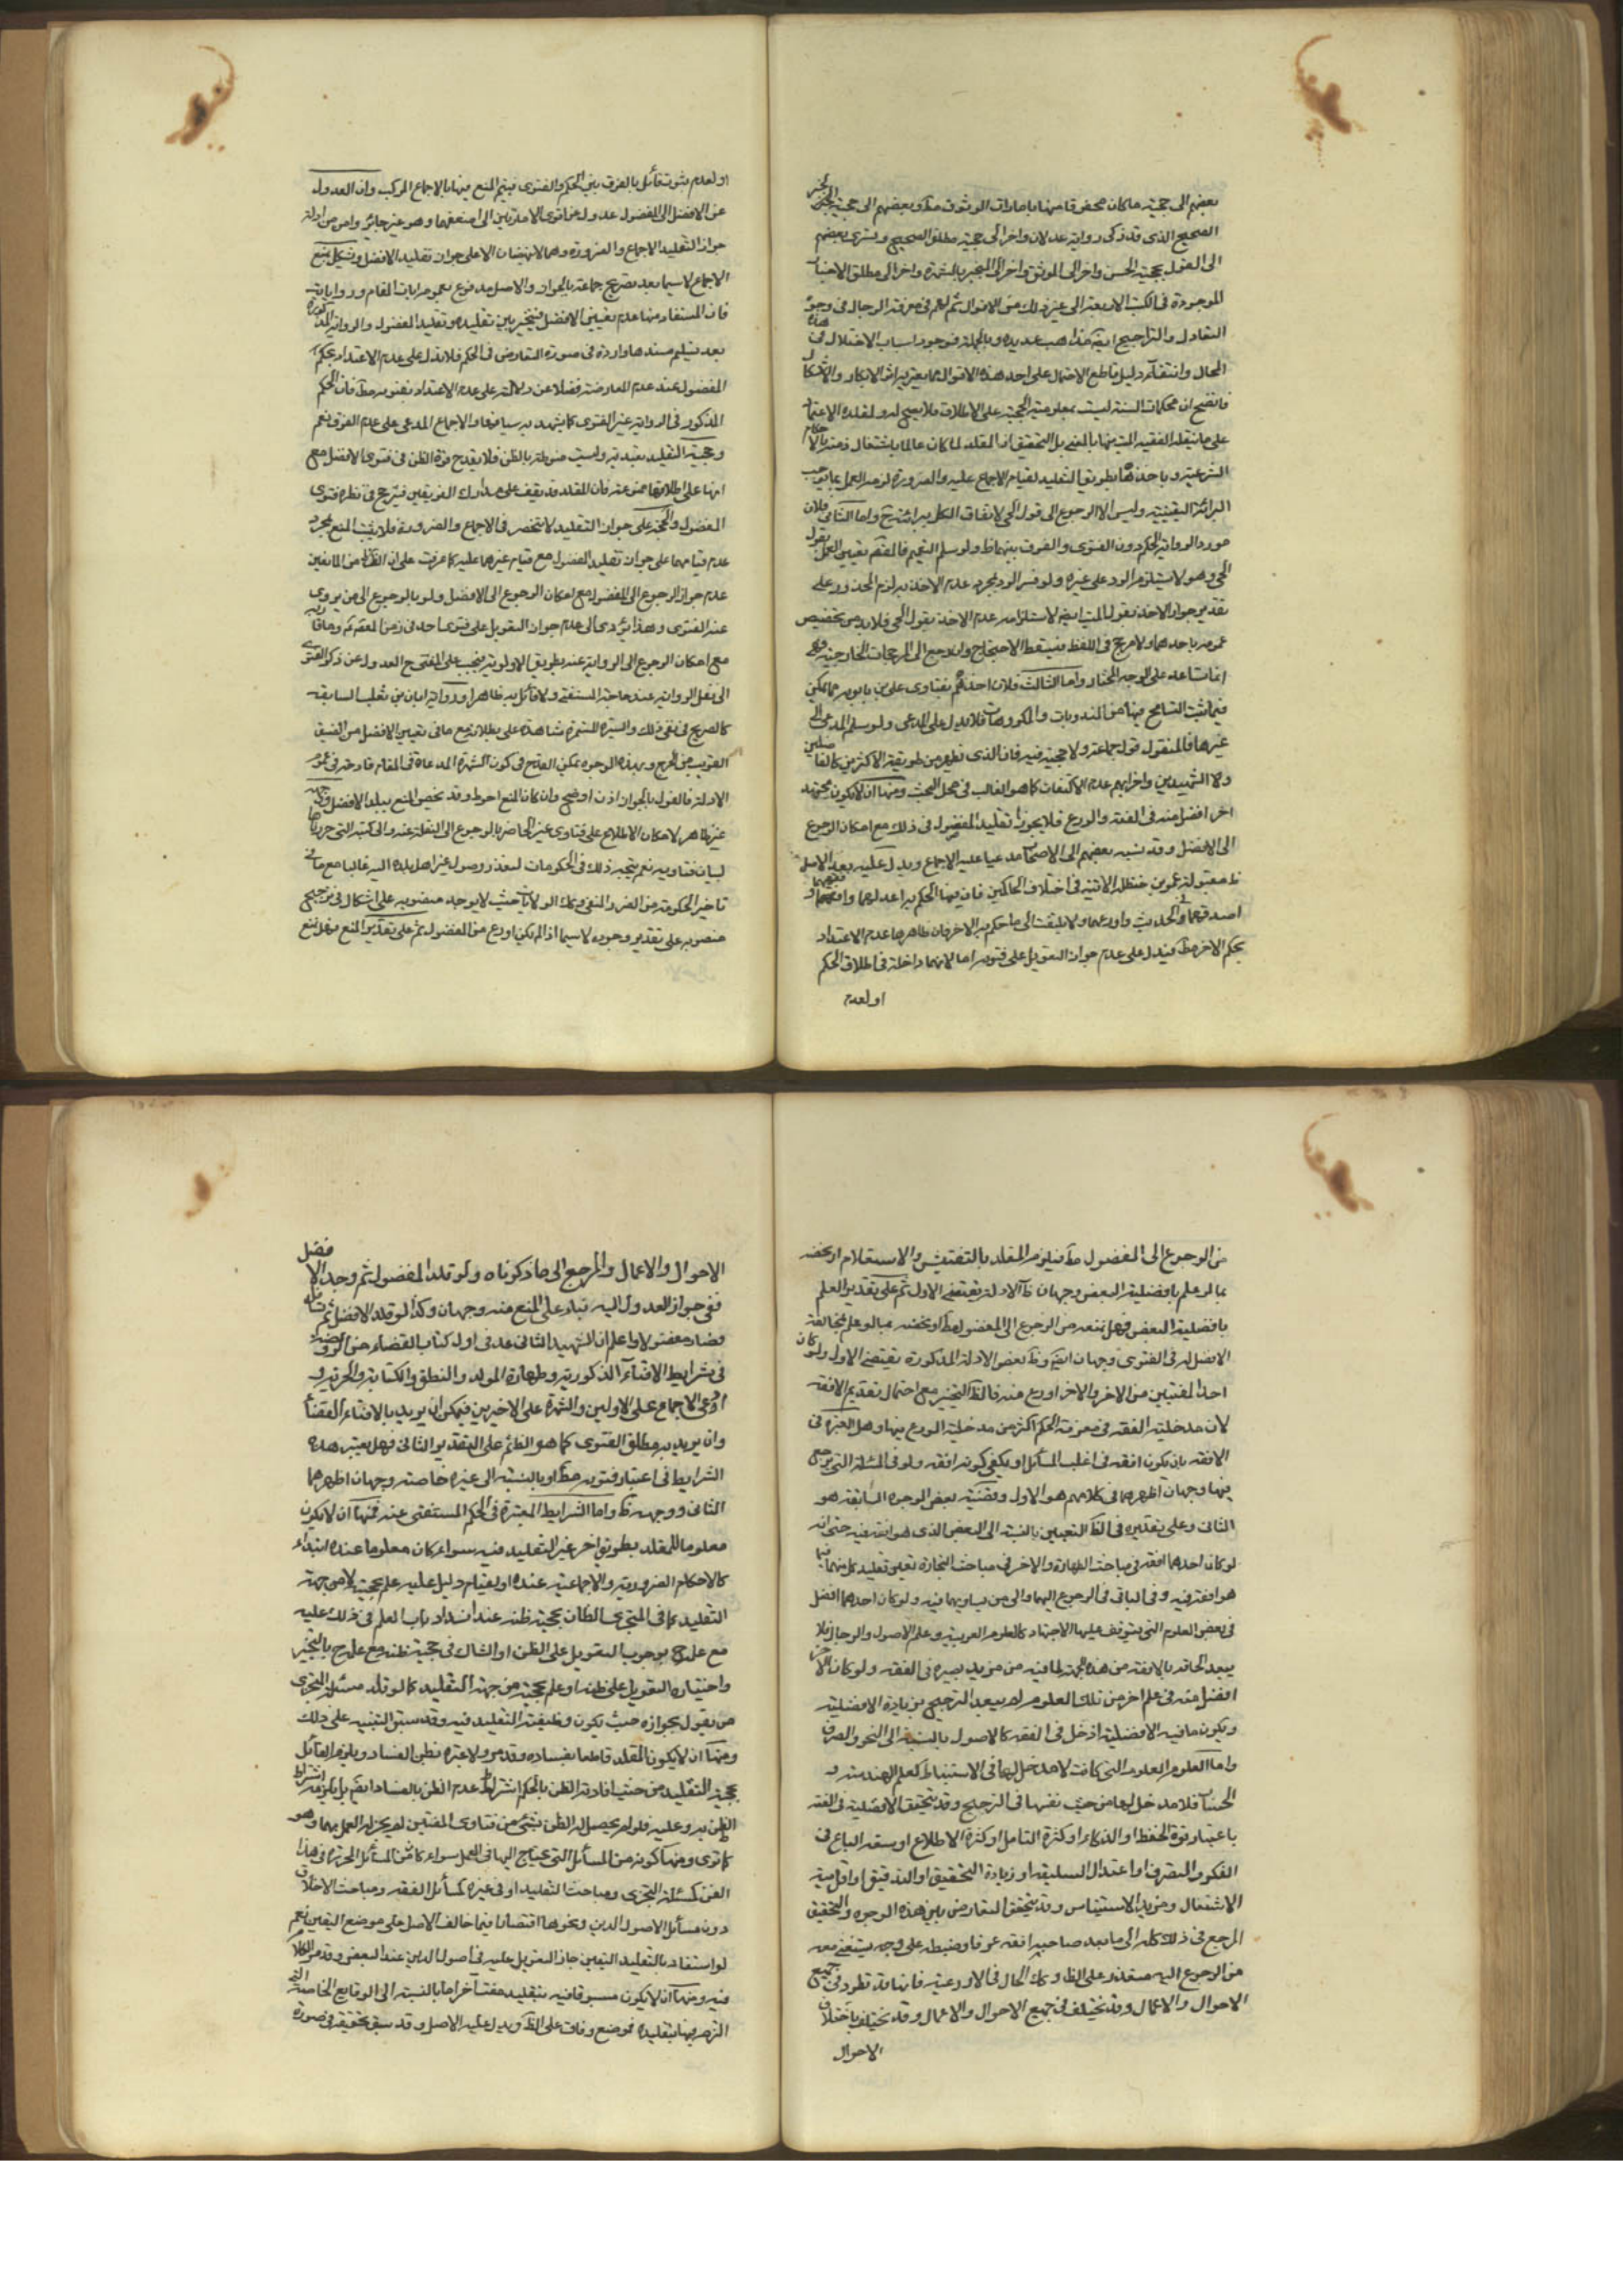 بعضهم الى حجية ما كان محفوفا منها بامارات الوثوق منه وبعضهم الى حجية الخبر
الصحيح الذى قد ذكى رواته عدلان واخر الى حجية مطلق الصحيح وتسرى بعضهم
الى القول بحجية الحسن واخر الى الموثق واخر الى المنجبر بالشهرة واخر الى مطلق الاخبار
الموجودة فى الكتب الاربعة الى غير ذلك من الاقوال ثم لهم فى معرفة الرجال فى وجوه
التعادل والتراجيح ايضا مذاهب عديدة وبالجملة فوجود اسباب الاختلال فى هذه
الحال وانتفاء دليل قاطع الاحتمال على احد هذه الاقوال مما يعتريه اثر الانكار والاشكال
فاتضح ان محكمات السنة ليست بمعلومية الحجية على الاطلاق فلا يصح له ولمقلده الاعتماد
على ما ينقله الفقيه الميت منها بالمعنى بل التحقيق ان المقلد لما كان عالما باشتغال ذمته بالاحكام
الشرعية وباخذها بطريق التقليد لقيام الاجماع عليه والضرورة لزمه العمل بما يوجب
البرائة اليقينية وليس الا الرجوع الى قول الحى لاتفاق الكل ببرائته ح واما الثانى فلان
مورد الرواية الحكم دون الفتوى والفرق بينهما ظ ولو سلم التعميم فالمفهم تعيين العمل بقول
الحى وهو لا يستلزم الرد على غيره ولو فسر الرد بمجرد عدم الاخذ به لزم المحذور على
تقدير جواز الاخذ بقول الميت ايضا لاستلزامه عدم الاخذ بقول الحى فلا بد من تخصيص
عمومه باحدهما ولا مرجح فى اللفظ فيسقط الاحتجاج وان رجع الى المرجحات الخارجية فهى
انما تساعد على الوجه المختار واما الثالث فلان اخذهم بفتاوى على بن بابويه مما يمكن
فيما يثبت التسامح فيها من المندوبات والمكروهات فلا يدل على المدعى ولو سلم المدعى الى
غيرها فالمنقول قول جماعة ولا حجية فيه فان الذى نظهر من طريقة الاكثرين كالفاضلين
والشهيدين واضرابهم عدم الاكتفات كما هو الغالب فى محل البحث ومنها ان لا يكون مجتهد
اخر افضل منه فى الفقه والورع فلا يجوز تقليد المفضول فى ذلك مع امكان الرجوع
الى الافضل وقد نسبه بعضهم الى الاصحاب مدعيا عليه الاجماع ويدل عليه بعد الاصل
ظ مقبولة عمر بن حنظلة الاتية فى اختلاف الحاكمين فان فيها الحكم به اعدلهما وافقههما و
اصدقهما فى الحديث واورعهما ولا يلتفت الى ما حكم به الاخر فان ظاهرها عدم الاعتداد
بحكم الاخر مط فيدل على عدم جواز التعويل على فتويه اما لانهما داخلة فى اطلاق الحكم
او لعدم
او لعدم ثبوت قائل بالفرق بين الحكم والفتوى فيتم المنع فيها بالاجماع المركب وان العدول
عن الافضل الى المفضول عدول عن اقوى الامارتين الى اضعفهما وهو غير جائز وامر من ادلة
جواز التقليد الاجماع والضرورة وهما لا ينهضان الا على جواز تقليد الافضل ويشكل بمنع
الاجماع لا سيما بعد تصريح جماعة بالجواز والاصل مدفوع بعموم ايات المقام ورواياته
فان المستفاد منها عدم تعيين الافضل فيتخير بين تقليده وتقليد المفضول والرواية المذكورة
بعد تسليم سندها واردة فى صورة التعارض فى الحكم فلا يدل على عدم الاعتداد بحكم
المفضول عند عدم المعارضة فضلا عن دلالته على عدم الاعتداد بفتويه مط فان الحكم
المذكور فى الرواية غير الفتوى كما يشهد به سياقها والاجماع المدعى على عدم الفرق نعم
وحجية التقليد تعبدية وليست منوطة بالظن فلا يقدح قوة الظن فى فتوى الافضل مع
انها على اطلاقها ممنوعة فان المقلد قد يقف على مدارك الفريقين فيترجح فى نظره فتوى
المفضول والحجة على جواز التقليد لا تنحصر فى الاجماع والضرورة فلا يثبت المنع بمجرد
عدم قيامهما على جواز تقليد المفضول مع قيام غيرهما عليه كما عرفت على ان الظ من المانعين
عدم جواز الرجوع الى المفضول مع امكان الرجوع الى الافضل ولو بالرجوع الى من يروى
عنه الفتوى وهذا يؤدى الى عدم جواز التعويل على فتوى احد فى زمن المعصوم وما قاربه
مع امكان الرجوع الى الرواية عنه بطريق الاولوية فيجب على المفتى ح العدول عن ذكر الفتوى
الى نقل الرواية عند حاجة المستفتى ولا قائل به ظاهرا ورواية ابان بن تغلب السابقة
كالصريح فى نفى ذلك والسيرة المستمرة شاهدة على بطلانه مع ما فى تعيين الافضل من الضيق
القريب من الحرج وبهذه الوجوه يمكن القدح فى كون الشهرة المدعاة فى المقام قادحة فى عموم
الادلة فالقول بالجواز اذن اوضح وان كان المنع احوط وقد يخص المنع ببلد الافضل ووجهه
غير ظاهر لامكان الاطلاع على فتاوى غير الحاضر بالرجوع الى النقلة عنه والى كتبه التى حررها
لبيان فتاويه نعم يتجه ذلك فى الحكومات لتعذر وصول غير اهل بلده اليه غالبا مع ما فى
تاخير الحكومة من الضرر المنفى وكك الولايات حيث لا يوجد منصوبه على اشكال فى ترجيح
منصوبه على تقدير وجوده لا سيما اذا لم يكن اورع من المفضول ثم على تقدير المنع فهل يمنع
من الرجوع الى المفضول مط فيلزم المقلد بالتفتيش والاستعلام او يخصه
بما لو علم بافضلية البعض وجهان ظ الادلة يقتضى الاول ثم على تقدير العلم
بافضلية البعض فهل يمنعه من الرجوع الى المفضول مط او يخصه بما لو علم مخالفة
الافضل له فى الفتوى وجهان ايضا وظ بعض الادلة المذكورة يقتضى الاول ولو كان
احد المفتيين من الاخر والاخر اورع منه فالظ التخيير مع احتمال تقديم الافقه
لان مدخلية الفقه فى معرفة الحكم اكثر من مدخلية الورع فيها وهل العبرة فى
الافقه بان يكون افقه فى اغلب المسائل او يكفى كونه افقه ولو فى المسئلة التى يرجع
فيها وجهان اظهرهما فى كلامهم هو الاول وقضية بعض الوجوه السابقة هو
الثانى وعلى تقديره فى الظ التعيين بالنسبة الى البعض الذى هو افقه فيه حتى انه
لو كان احدهما افقه فى مباحث الطهارة والاخر فى مباحث التجارة تعين تقليد كل منهما فيما
هو افقه فيه وفى الباقى فى الرجوع اليهما والى من يساويهما فيه ولو كان احدهما افضل
فى بعض العلوم التى يتوقف عليها الاجتهاد كالعلوم العربية وعلم الاصول والرجال فلا
يبعد الحاقه بالافقه من هذه الجهة لما فيه من مزيد بصيرة فى الفقه ولو كان الاخر
افضل منه فى علم اخر من تلك العلوم لم يبعد الترجيح بزيادة الافضلية
ويكون ما فيه الافضلية ادخل فى الفقه كالاصول بالنسبة الى النحو والصرف
واما العلوم العلوم التى كانت لا مدخل لها فى الاستنباط كعلم الهندسة و
الحساب فلا مدخل لها من حيث نفسها فى الترجيح وقد يتحقق الافضلية فى الفقه
باعتبار قوة الحفظ او الذكاء او كثرة التامل او كثرة الاطلاع او سعة الباع فى
الفكر والتصرف او اعتدال السليقة او زيادة التحقيق او التدقيق او اقدمية
الاشتغال ومزيد الاستيناس وقد يتحقق التعارض بين هذه الوجوه والتحقيق
المرجع فى ذلك كله الى ما يعد صاحبه افقه عرفا وضبطه على وجه يستغنى معه
من الرجوع اليه متعذر على الظ وكك الحال فى الاورعية فانها قد تطرد فى جميع
الاحوال والاعمال وقد تختلف فى جميع الاحوال والاعمال وقد يختلف باختلاف
الاحوال
الاحوال والاعمال والمرجع الى ما ذكرناه ولو قلد المفضول ثم وجد الافضل
ففى جواز العدول اليه بناء على المنع منه وجهان وكذا لو قلد الافضل ثم قلده
فصار مفضولا واعلم ان الشهيد الثانى عد فى اول كتاب القضاء من الروضة
فى شرايط الافتاء الذكورية وطهارة المولد والنطق والكتابة والحرية و
ادعى الاجماع على الاولين والشهرة على الاخيرين فيمكن ان يريد بالافتاء القضاء
وان يريد به مطلق الفتوى كما هو الظ ثم على التقدير الثانى فهل يعتبر هذه
الشرايط فى اعتبار فتويه مط او بالنسبة الى غيره خاصة وجهان اظهرهما
الثانى ووجهه ظ واما الشرايط المعتبرة فى الحكم المستفتى عنه فمنها ان لا يكون
معلوما للمقلد بطريق اخر غير التقليد فيه سواء كان معلوما عنده ابتداء
كالاحكام الضرورية والاجماعية عنده او بقيام دليل عليه علم حجيته لا من جهة
التقليد كما فى المتجزى الظان بحجية ظنه عند انسداد باب العلم فى ذلك عليه
مع علمه ح بوجوب التعويل على الظن او الشاك فى حجية ظنه مع علمه ح بالتخيير
واختياره التعويل على ظنه او علم بحجيته من جهة التقليد كما لو قلد مسئلة التجزى
من يقول بجوازه حيث يكون وظيفته التقليد فيه وقد سبق التنبيه على ذلك
ومنها ان لا يكون المقلد قاطعا بفساده وقد مر ولا عبرة بظن الفساد ويلزم القائل
بحجية التقليد من حيث افادته الظن بالحكم اشتراط عدم الظن بالفساد ايضا بل يلزمه اشتراط
الظن به وعليه فلو لم يحصل له الظن بشئ من فتاوى المفتين لم يجز له العمل بها وهو
كما ترى ومنها كونه من المسائل التى يحتاج اليها فى العمل سواء كانت من المسائل المحررة فى هذا
الفن كمسئلة التجزى ومباحث التقليد او فى غيره كمسائل الفقه ومباحث الاخلاق
دون مسائل الاصول الدين ونحوها اقتصارا فيما خالف الاصل على موضع اليقين نعم
لو استفاد بالتقليد اليقين جاز التعويل عليه فى اصول الدين عند البعض وقد مر الكلام
فيه ومنها ان لا يكون مسبوقا فيه بتقليد مفت اخر اما بالنسبة الى الوقايع الخاصة التى
التزم فيها بتقليده فموضع وفاق على الظ ويدل عليه الاصل وقد سبق تحقيقه فى صورة